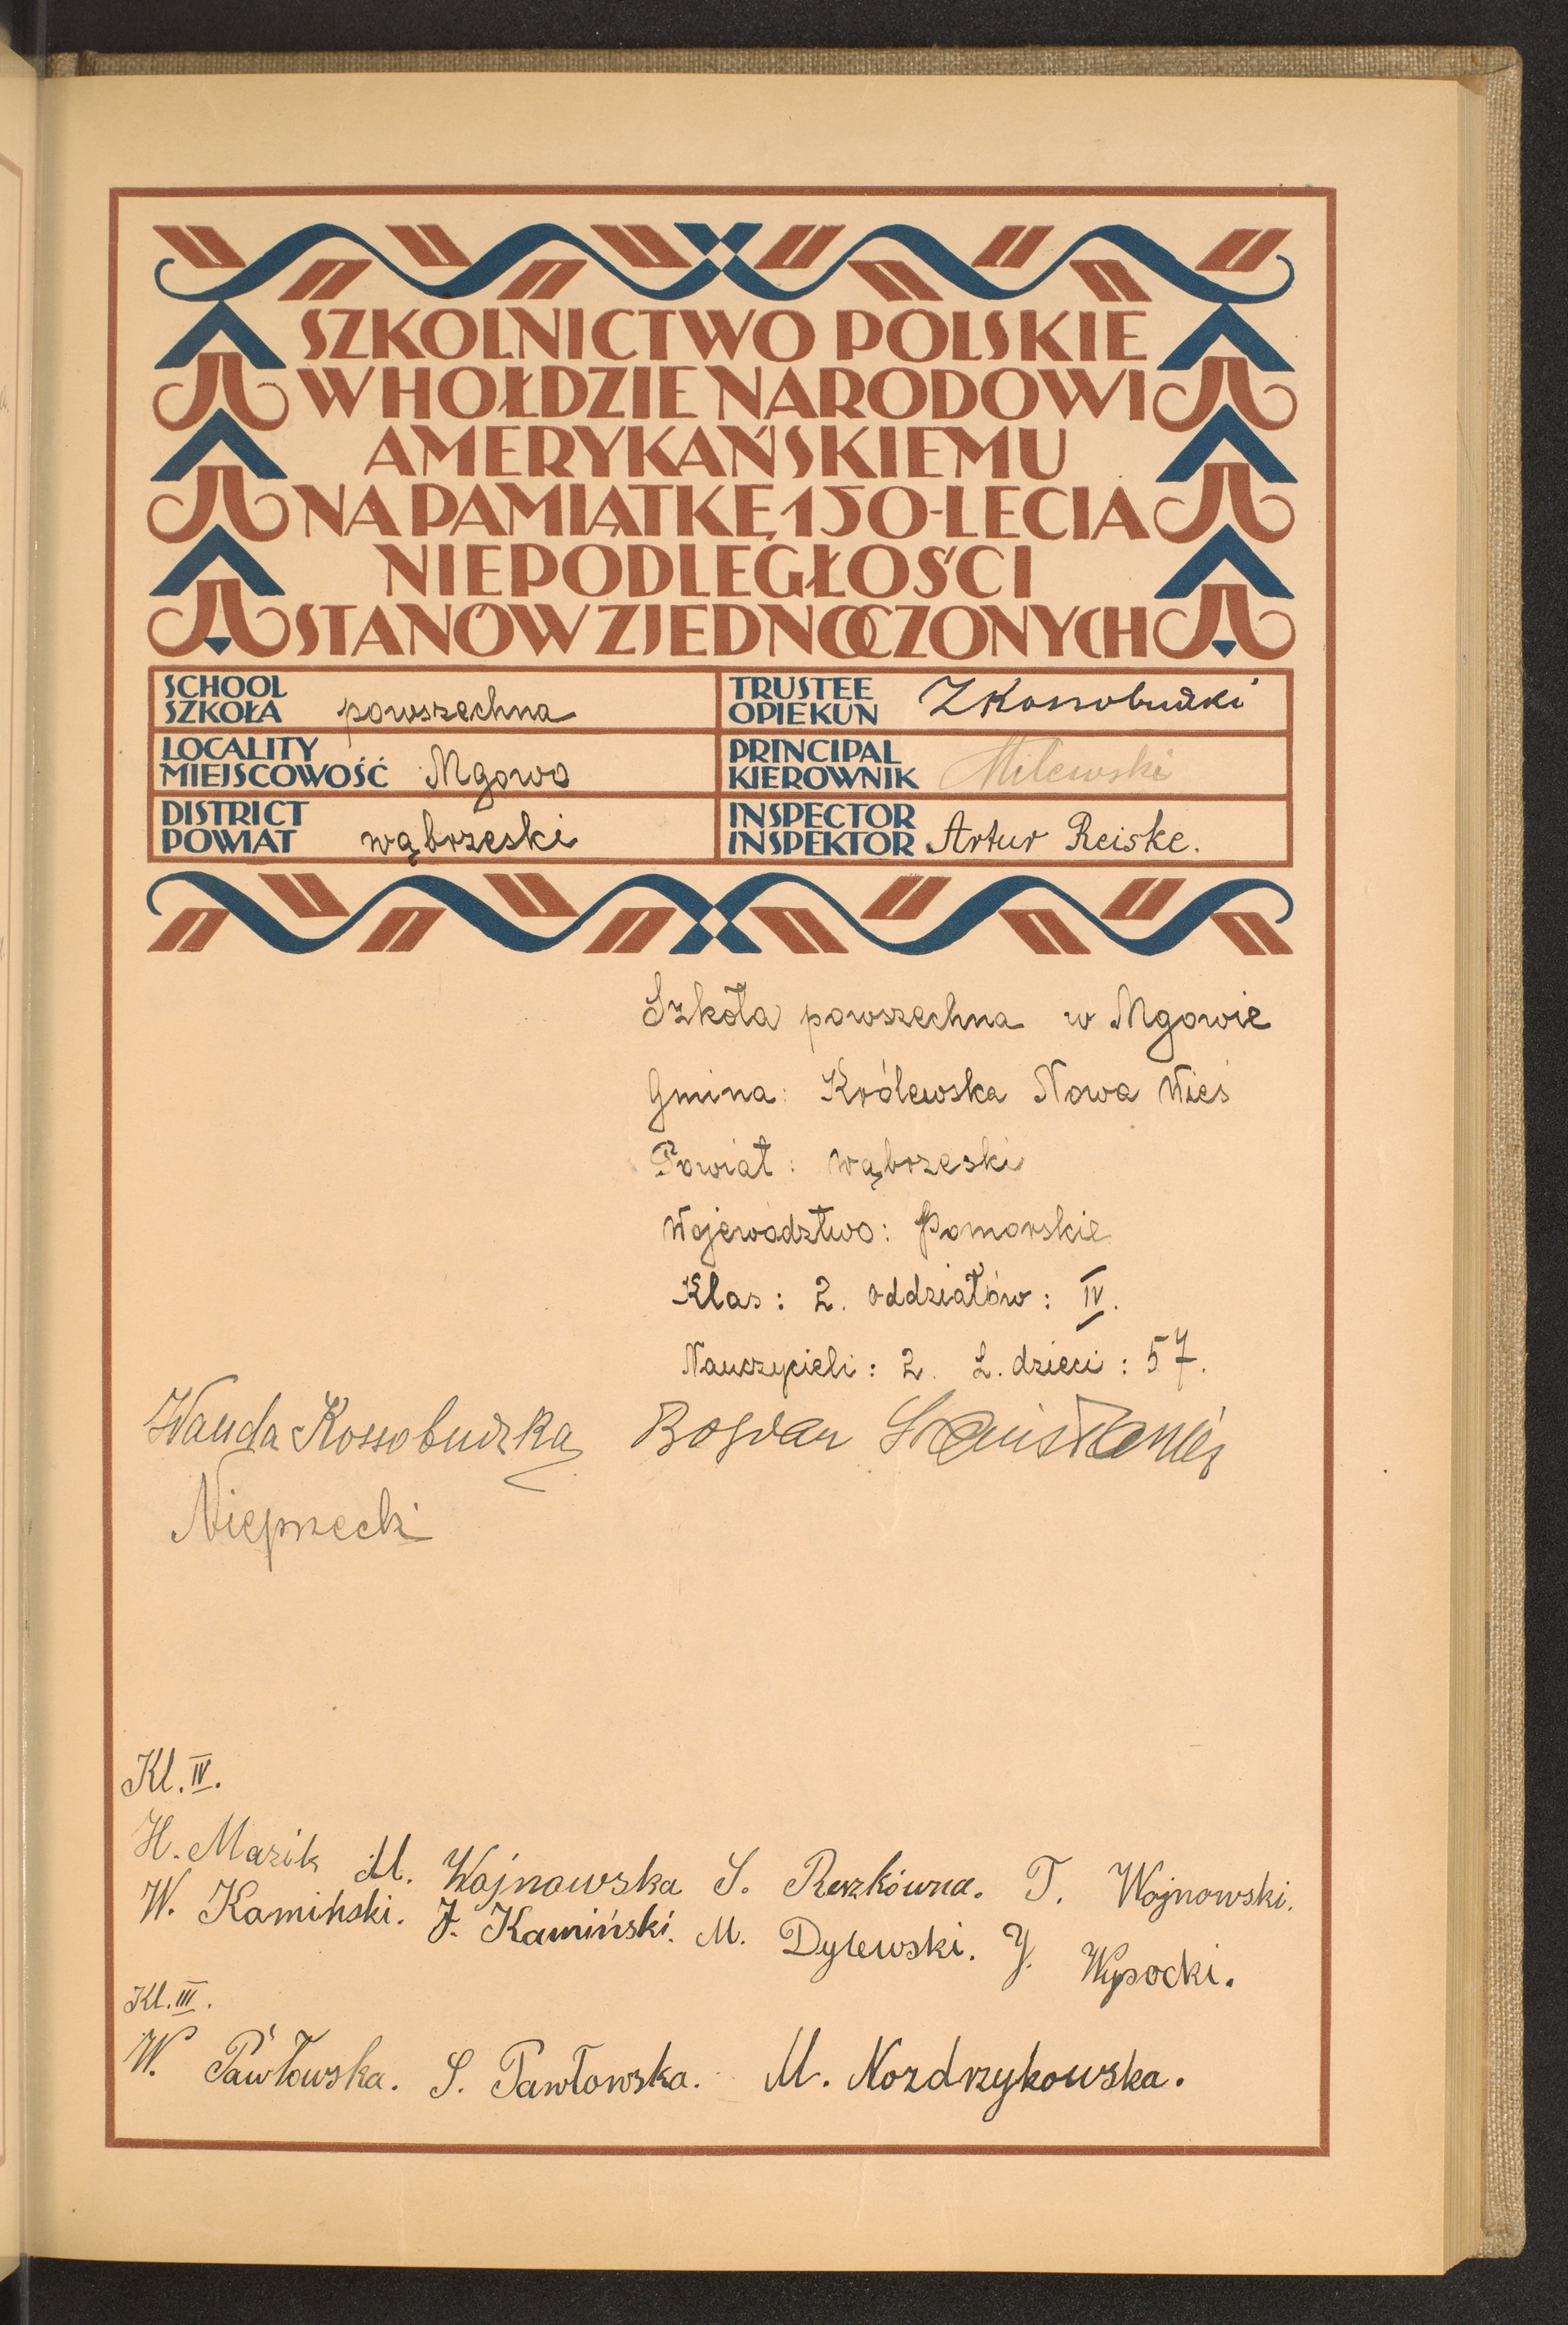 SZKOLNICTWO POLSKIE
W HOŁDZIE NARODOWI
AMERYKAŃSKIEMU
NA PAMIĄTKĘ 150-LECIA
NIEPODLEGŁOŚCI
STANÓW ZJEDNOCZONYCH
SCHOOL
SZKOŁA powszechna
TRUSTEE
OPIEKUN Z Kossobudzki
LOCALITY
MIEJSCOWOŚĆ Mgowo
PRINCIPAL
KIEROWNIK Milewski
DISTRICT
POWIAT wąbrzeski
INSPECTOR
INSPEKTOR Artur Reiske.
Szkoła powszechna w Mgowie
Gmina: Królewska Nowa Wieś
Powiat: wąbrzeski
Województwo: Pomorskie
Klas: 2. oddziałów: IV.
Nauczycieli: 2. L. dzieci: 57.
Wanda Kossobudzka Bogdan
Kl. IV.
H. Mazik M. Wojnowska S. Reszkówna. T. Wojnowski.
W. Kamiński. F. Kamiński. M. Dylewski. J. Wysocki.
Kl. III.
W. Pawłowska. S. Pawłowska. M. Nozdrzykowska.